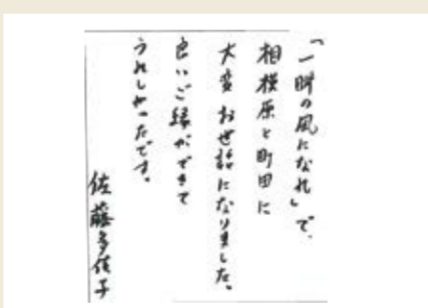 「一瞬の風になれ」で、
相模原と町田に
大変お世話になりました。
良いご縁ができて
うれしかったです。
佐藤多佳子